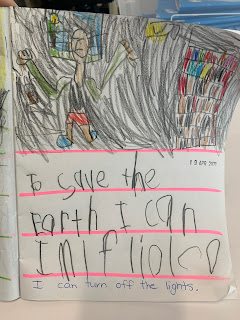 18 APR 2011
to save the
Earth I can
I can turn off the lights.